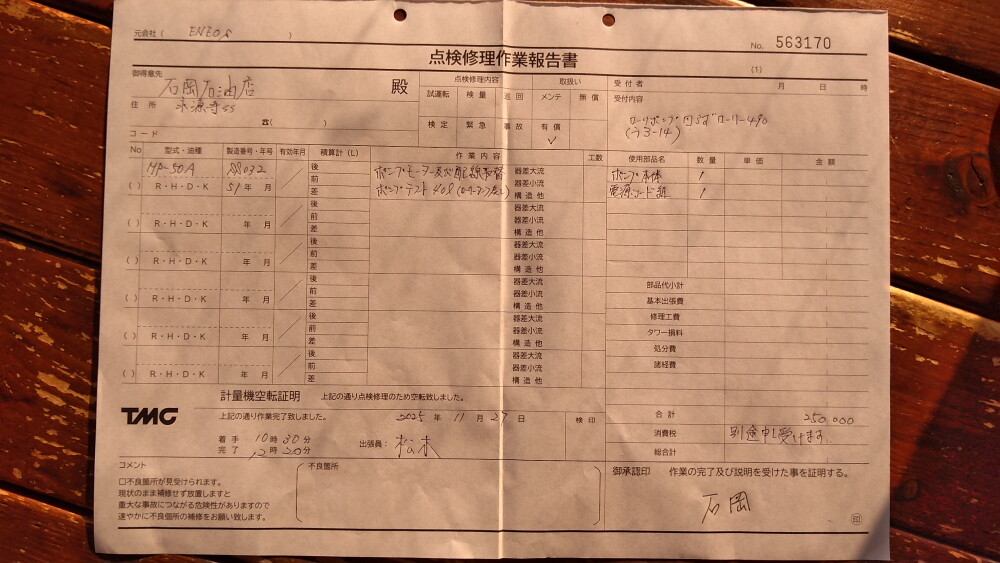 元会社 ( ENEOS )
No. 563170
点検修理作業報告書
(1)
御得意先
石岡石油店 殿
住 所
永源寺SS
☎( )
コード
点検修理内容 取扱い
試運転 検 量 巡 回 メンテ 無 償
検 定 緊 急 事 故 有 償
✓
受 付 者 月 日 時
受付内容
ローリーポンプ 回らず ローリー490
(う3-14)
No 型式・油種 製造番号・年号 有効年月 積算計 (L) 作 業 内 容 工数 使用部品名 数 量 単 価 金 額
HP-50A S8032 後 ポンプモーター及び配線取替 器差大流 ポンプ本体 1
( ) R・H・D・K 51年 月 前 ポンプテスト 40ℓ 器差小流 電源コード 1
差 構 造 他
後 器差大流
前 器差小流
( ) R・H・D・K 年 月 差 構 造 他
後 器差大流
前 器差小流
( ) R・H・D・K 年 月 差 構 造 他
後 器差大流
前 器差小流
( ) R・H・D・K 年 月 差 構 造 他
後 器差大流
前 器差小流
( ) R・H・D・K 年 月 差 構 造 他
後 器差大流
前 器差小流
( ) R・H・D・K 年 月 差 構 造 他
部品代小計
基本出張費
修理工費
タワー損料
処分費
諸経費
合 計 250,000
消費税 別途申し受けます.
総合計
計量機空転証明 上記の通り点検修理のため空転致しました。
TMC
上記の通り作業完了致しました。 2025年 11月 27日 検 印
着 手 10時30分
完 了 12時30分
出張員: 松木
コメント
□不良箇所が見受けられます。
現状のまま補修せず放置しますと
重大な事故につながる危険性がありますので
速やかに不良個所の補修をお願い致します。
不良箇所
御承認印 作業の完了及び説明を受けた事を証明する。
石岡
印